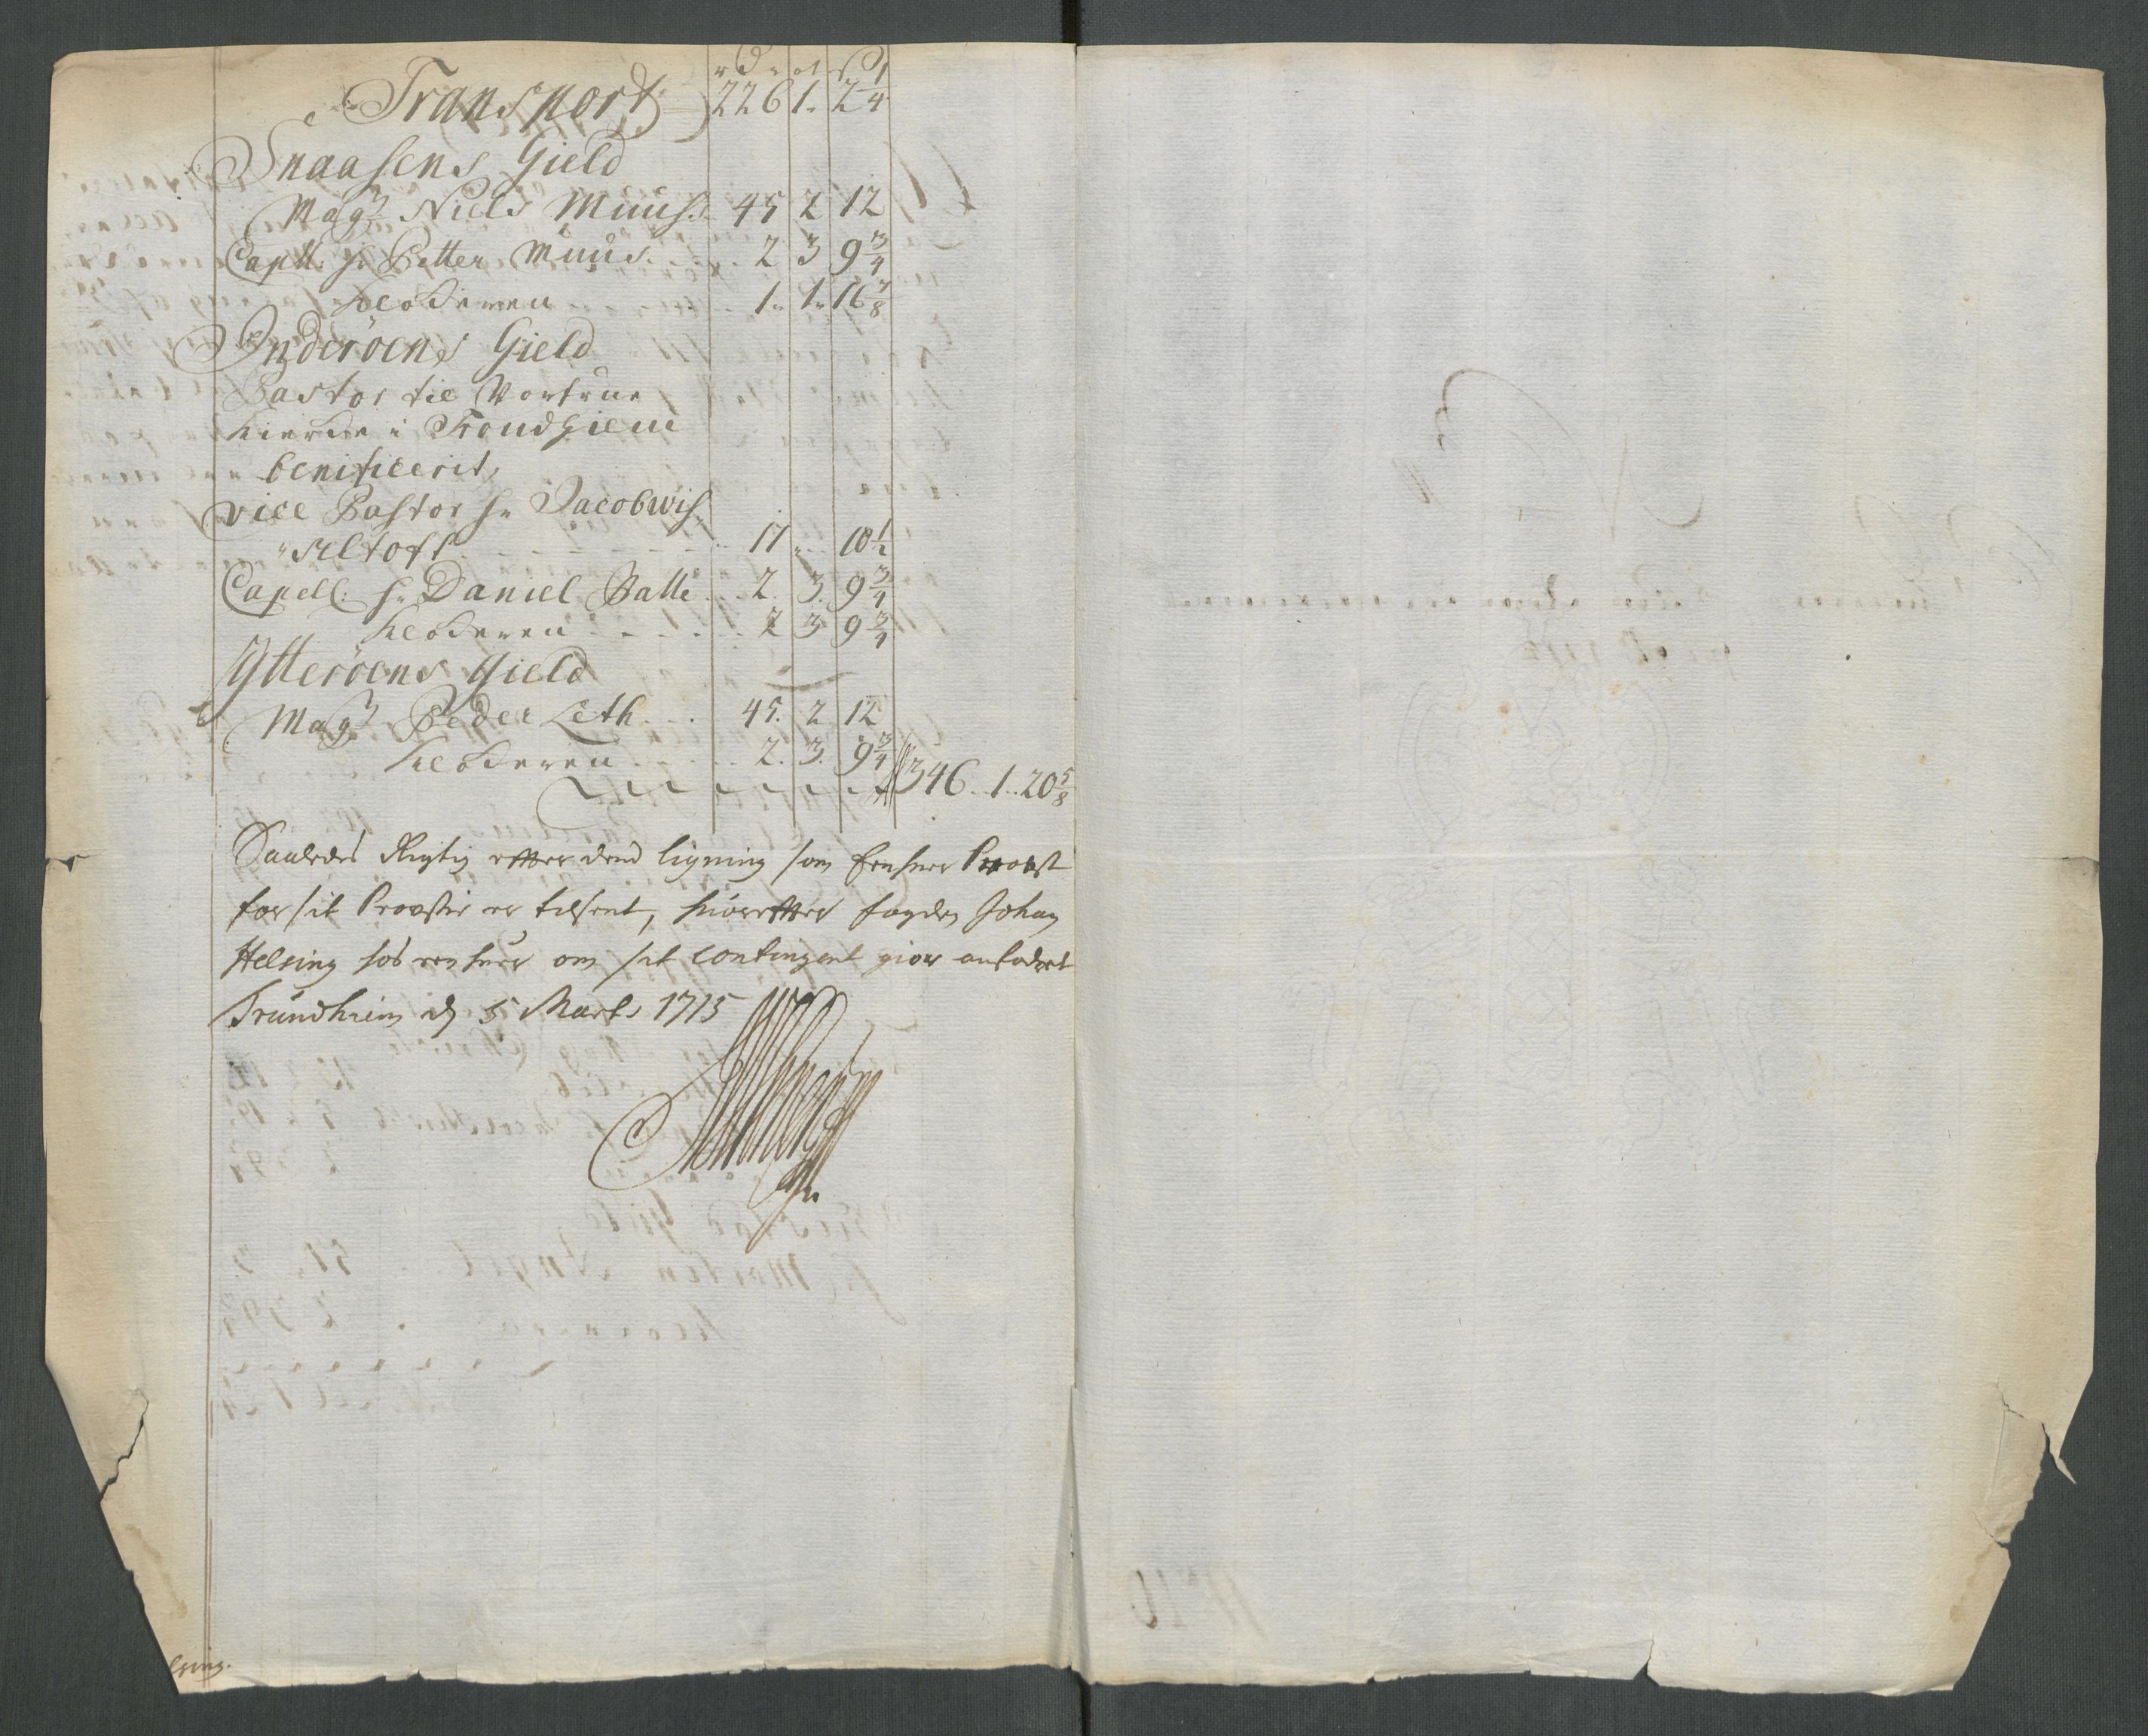 rd ort s
Transport 226 1. 2 1/4
Snaasens Gield
Magr Niels Muus. 45 2 12
Capell: hr Petter Muus. . . . 2 3 9 3/4
Klockeren . . . 1. 1. 16 7/8
Inderöens Gield
Pastor til Vorfrue
Kiercke i Trondhiem
benificerit,
vice Pastor hr Jacob
. . . 17 . 10 1/2
Capell: hr Daniel Balle . . . 2. 3. 9 3/4
Klockeren . . . 2 3 9 3/4
Ytteröens Gield
Magr Peder Leth . . . 45. 2 12
Klockeren . . . 2. 3. 9 3/4
346. . 1. . 20 5/8
Saaledes Rigtig effter dend ligning som Provst
for sit Provstie er tilsent, hvoreffter fogden Johan
Helsing hos om sit contingent giør anfodret
Trundhiem d 5 Marts 1715